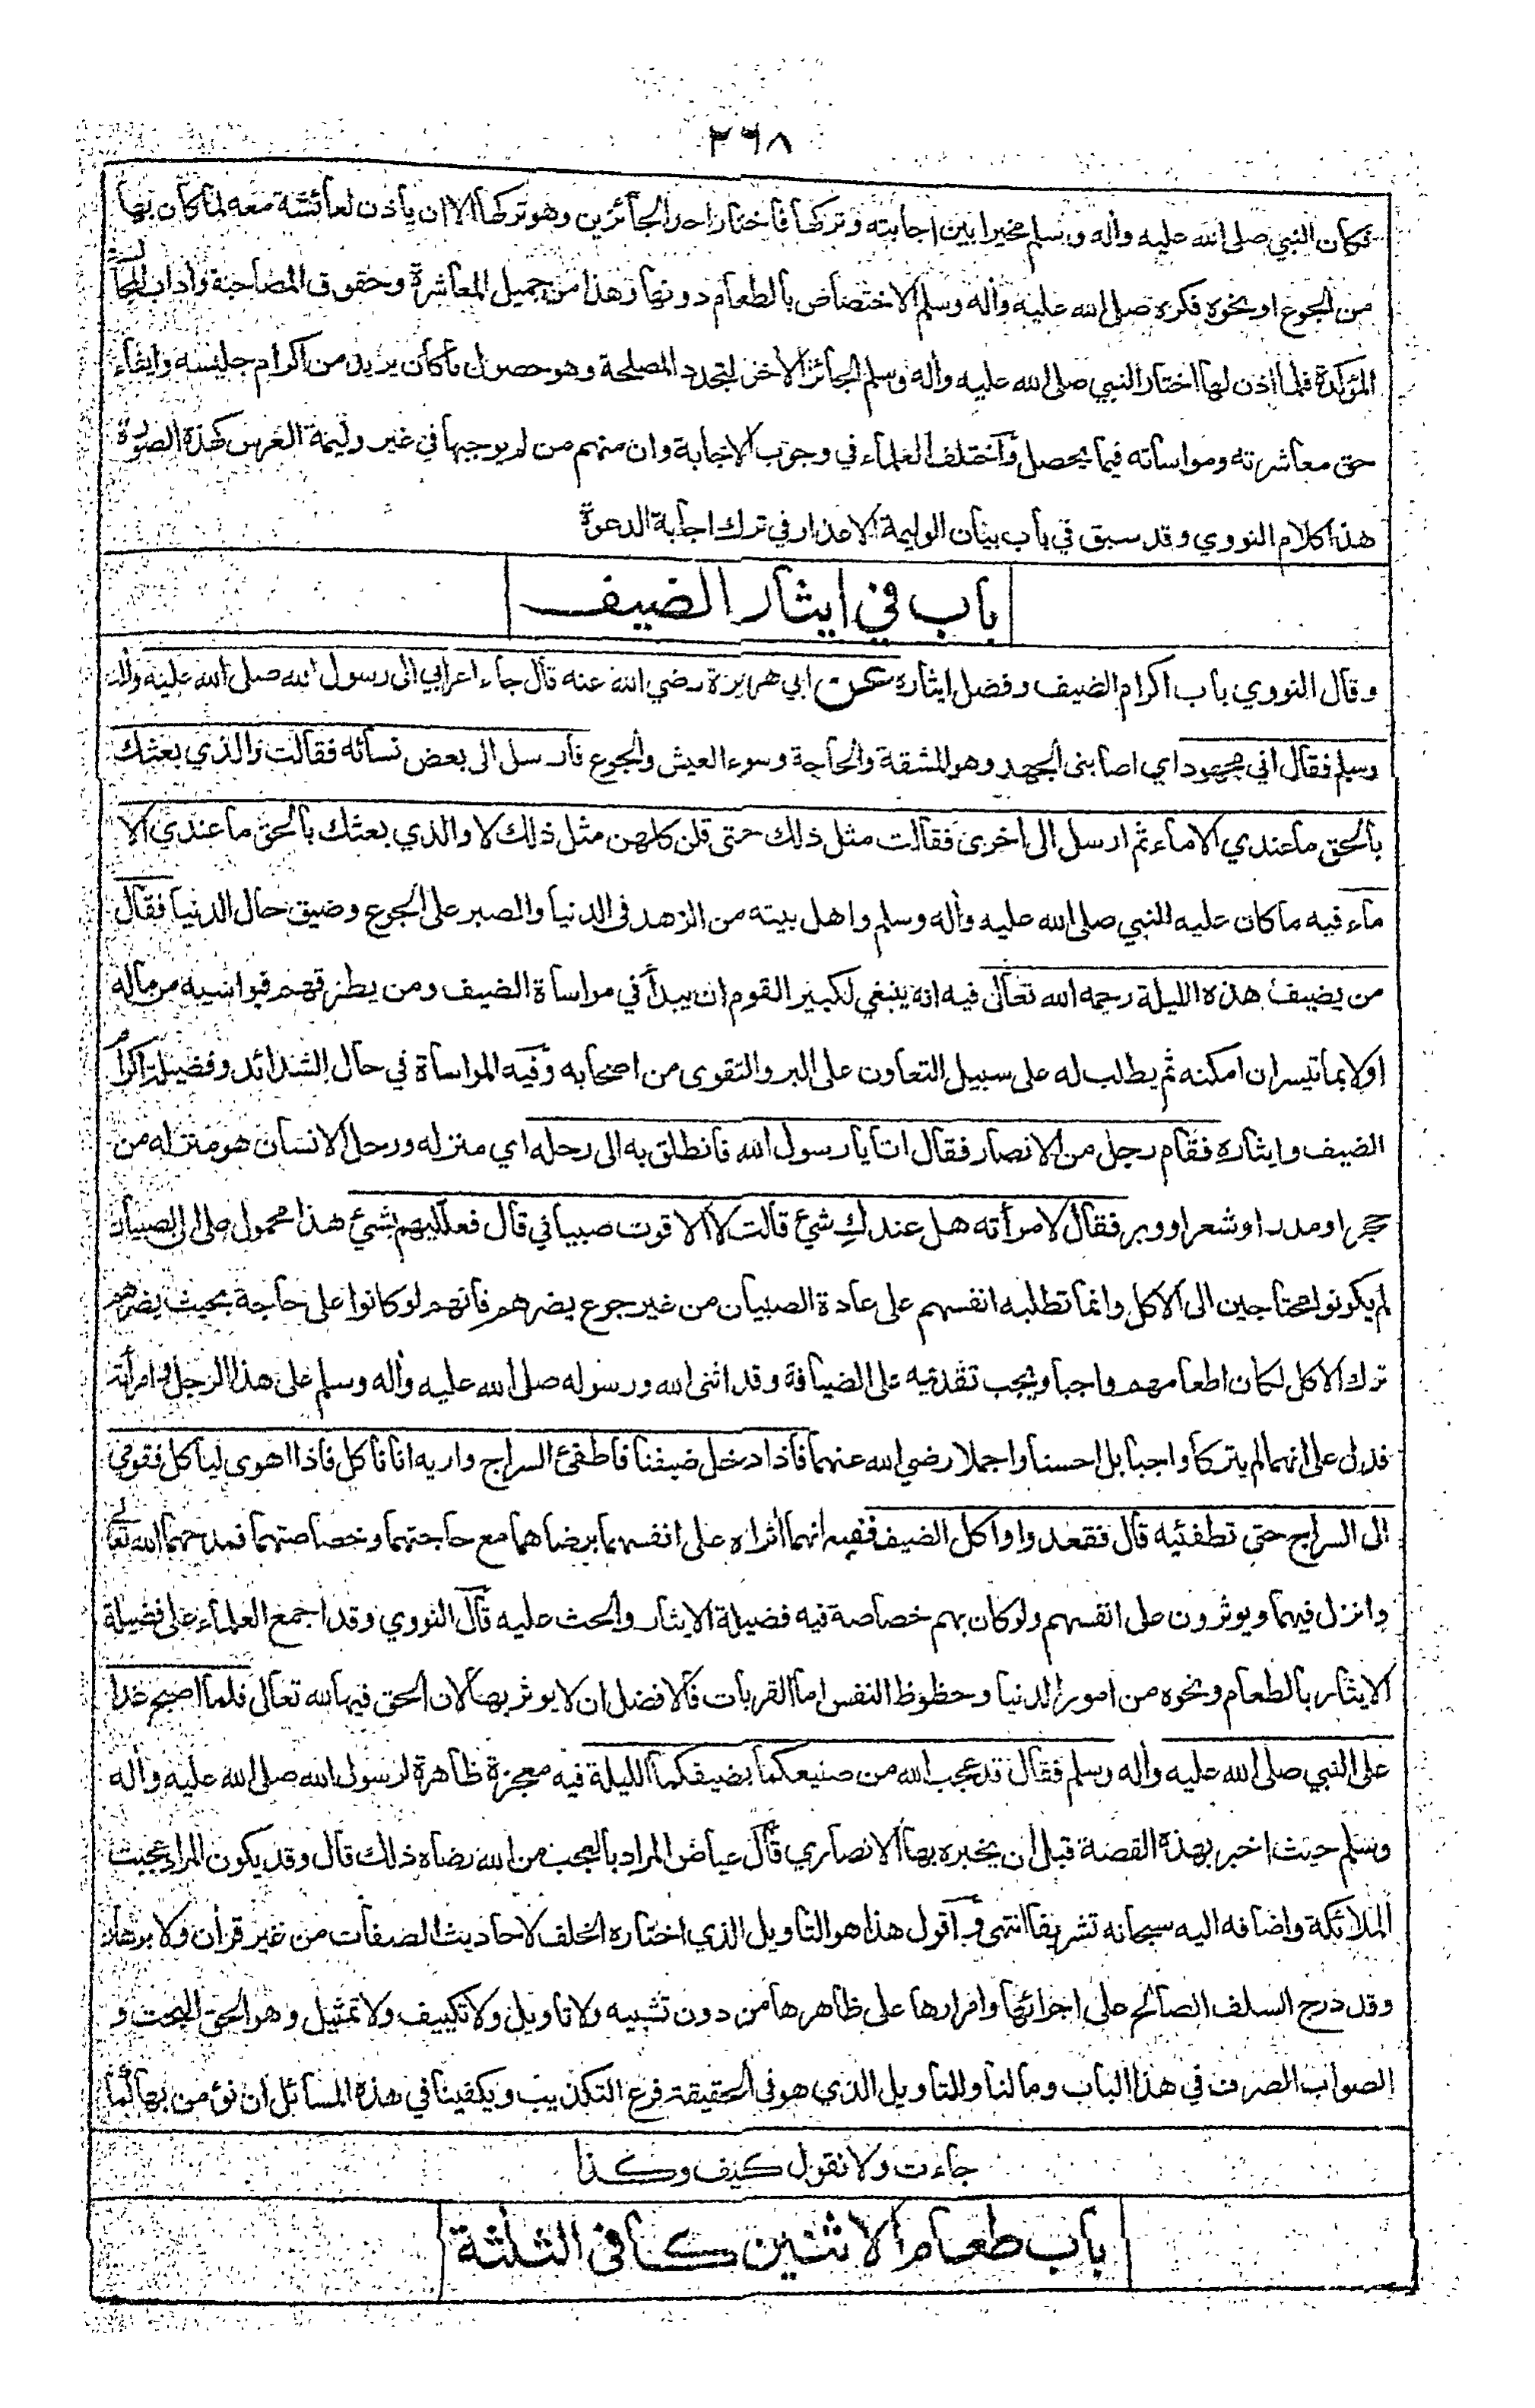 ٣٦٨
فكان النبي صلى الله عليه وأله وسلم مخيرا بين اجابته وتركها فاختار احد الجائزين وهو تركها الا ان يأذن لعائشة معه لما كان بها
من الجوع او نحوه فكره صلى الله عليه وأله وسلم الاختصاص بالطعام دونها وهذا من جميل المعاشرة وحقوق المصاحبة وأداب المجالسة
المؤكدة فلما اذن لها اختار النبي صلى الله عليه وأله وسلم الجائز الأخر لتجدد المصلحة وهو حصول ما كان يريد من اكرام جليسه وايفاء
حق معاشرته ومواساته فيما يحصل وأختلف العلماء في وجوب الاجابة وان منهم من لم يوجبها في غير وليمة العرس كهذه الصورة
هذا كلام النووي وقد سبق في باب بيان الوليمة الاعذار في ترك اجابة الدعوة
باب في ايثار الضيف
وقال النووي باب اكرام الضيف وفضل ايثاره عن ابي هريرة رضي الله عنه قال جاء اعرابي الى رسول الله صلى الله عليه وأله
وسلم فقال اني مجهود اي اصابني الجهد وهو المشقة والحاجة وسوء العيش والجوع فأرسل الى بعض نسائه فقالت والذي بعثك
بالحق ما عندي الا ماء ثم ارسل الى اخرى فقالت مثل ذلك حتى قلن كلهن مثل ذلك لا والذي بعثك بالحق ما عندي الا
ماء فيه ما كان عليه النبي صلى الله عليه وأله وسلم واهل بيته من الزهد فى الدنيا والصبر على الجوع وضيق حال الدنيا فقال
من يضيف هذه الليلة رحمه الله تعالى فيه انه ينبغي لكبير القوم ان يبدأ في مواساة الضيف ومن يطرقهم فيواسيه من ماله
اولا بما تيسر ان امكنه ثم يطلب له على سبيل التعاون على البر والتقوى من اصحابه وفيه المواساة في حال الشدائد وفضيلة اكرام
الضيف وايثاره فقام رجل من الانصار فقال انا يا رسول الله فانطلق به الى رحله اي منزله ورحل الانسان هو منزله من
حجر او مدر او شعر او وبر فقال لامرأته هل عندكِ شئ قالت لا الا قوت صبياني قال فعلليهم بشيئ هذا محمول على ان الصبيان
لم يكونوا محتاجين الى الاكل وانما تطلبه انفسهم على عادة الصبيان من غير جوع يضرهم فانهم لو كانوا على حاجة بحيث يضرهم
ترك الاكل لكان اطعامهم واجبا ويجب تقديمه على الضيافة وقد اثنى الله ورسوله صلى الله عليه وأله وسلم على هذا الرجل وامرأته
فدل على انهما لم يتركا واجبا بل احسنا واجملا رضي الله عنهما فاذا دخل ضيفنا فاطفئ السراج واريه انا نأكل فاذا اهوى ليأكل فقومي
الى السراج حتى تطفئيه قال فقعدوا واكل الضيف ففيه انهما أثراه على انفسهما برضاهما مع حاجتهما وخصاصتهما فمدحهما الله تعالى
وانزل فيهما ويوثرون على انفسهم ولو كان بهم خصاصة فيه فضيلة الايثار والحث عليه قال النووي وقد اجمع العلماء على فضيلة
الايثار بالطعام ونحوه من امور الدنيا وحظوظ النفس اما القربات فالافضل ان لا يوثر بها لان الحق فيها لله تعالى فلما اصبح غدا
على النبي صلى الله عليه وأله وسلم فقال قد عجب الله من صنيعكما بضيفكما الليلة فيه معجزة ظاهرة لرسول الله صلى الله عليه وأله
وسلم حيث اخبر بهذه القصة قبل ان يخبره بها الانصاري قال عياض المراد بالعجب من الله رضاه ذلك قال وقد يكون المراد عجبت
الملائكة واضافه اليه سبحانه تشريفا انتهى وأقول هذا هو التاويل الذي اختاره الخلف لاحاديث الصفات من غير قرأن ولا برهان
وقد درج السلف الصالح على اجرائها وامرارها على ظاهرها من دون تشبيه ولا تاويل ولا تكييف ولا تمثيل وهو الحق البحت و
الصواب الصرف في هذا الباب وما لنا وللتاويل الذي هو فى الحقيقة فرع التكذيب ويكفينا في هذه المسائل ان نؤمن بها كما
جاءت ولا نقول كيف وكذا
باب طعام الاثنين كافى الثلثة